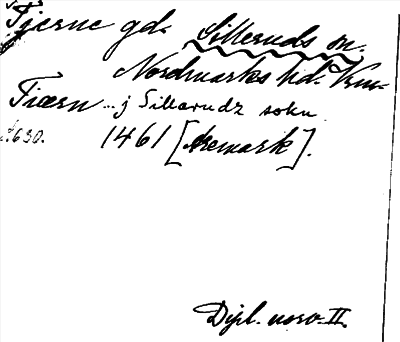 Tjerne gd. Silleruds sn.
Nordmarks hd. Vrm.
Tiærn ... j Sillarudz sokn
A630. 1461 [Aremark].
Dipl. norv. II.